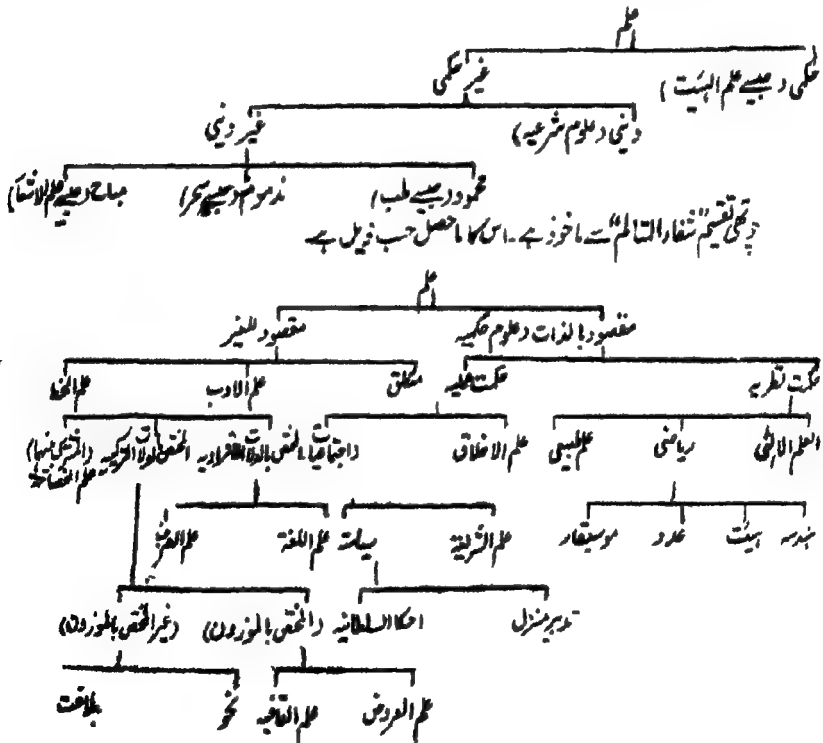 علم
حکمی (جیسے علم الہیئت) غیر حکمی
دینی (علوم شرعیہ) غیر دینی
محمود (جیسے طب) مذموم (جیسے سحر) مباح (جیسے علم الانشاء)
تقسیم "شفاء المتالم" سے ماخوذ ہے۔ اس کا ماحصل حسب ذیل ہے۔
علم
مقصود بالذات (علوم حکمیہ مقصود للغیر
حکمت نظریہ حکمت عملیہ منطق علم الادب علم الخط
العلم الالٰہی ریاضی علم طبیعی علم الاخلاق (اجتماعیات) المختص بالدلالات الافرادیہ المختص بالدلالات الترکیبیہ
ہندسہ ہیئت عدد موسیقار علم الشریعۃ سیاست علم اللغۃ علم الصرف
تدبیر منزل احکام السلطانیہ (المختص بالموزون) (غیر المختص بالموزون)
علم العروض علم القافیہ نحو بلاغت